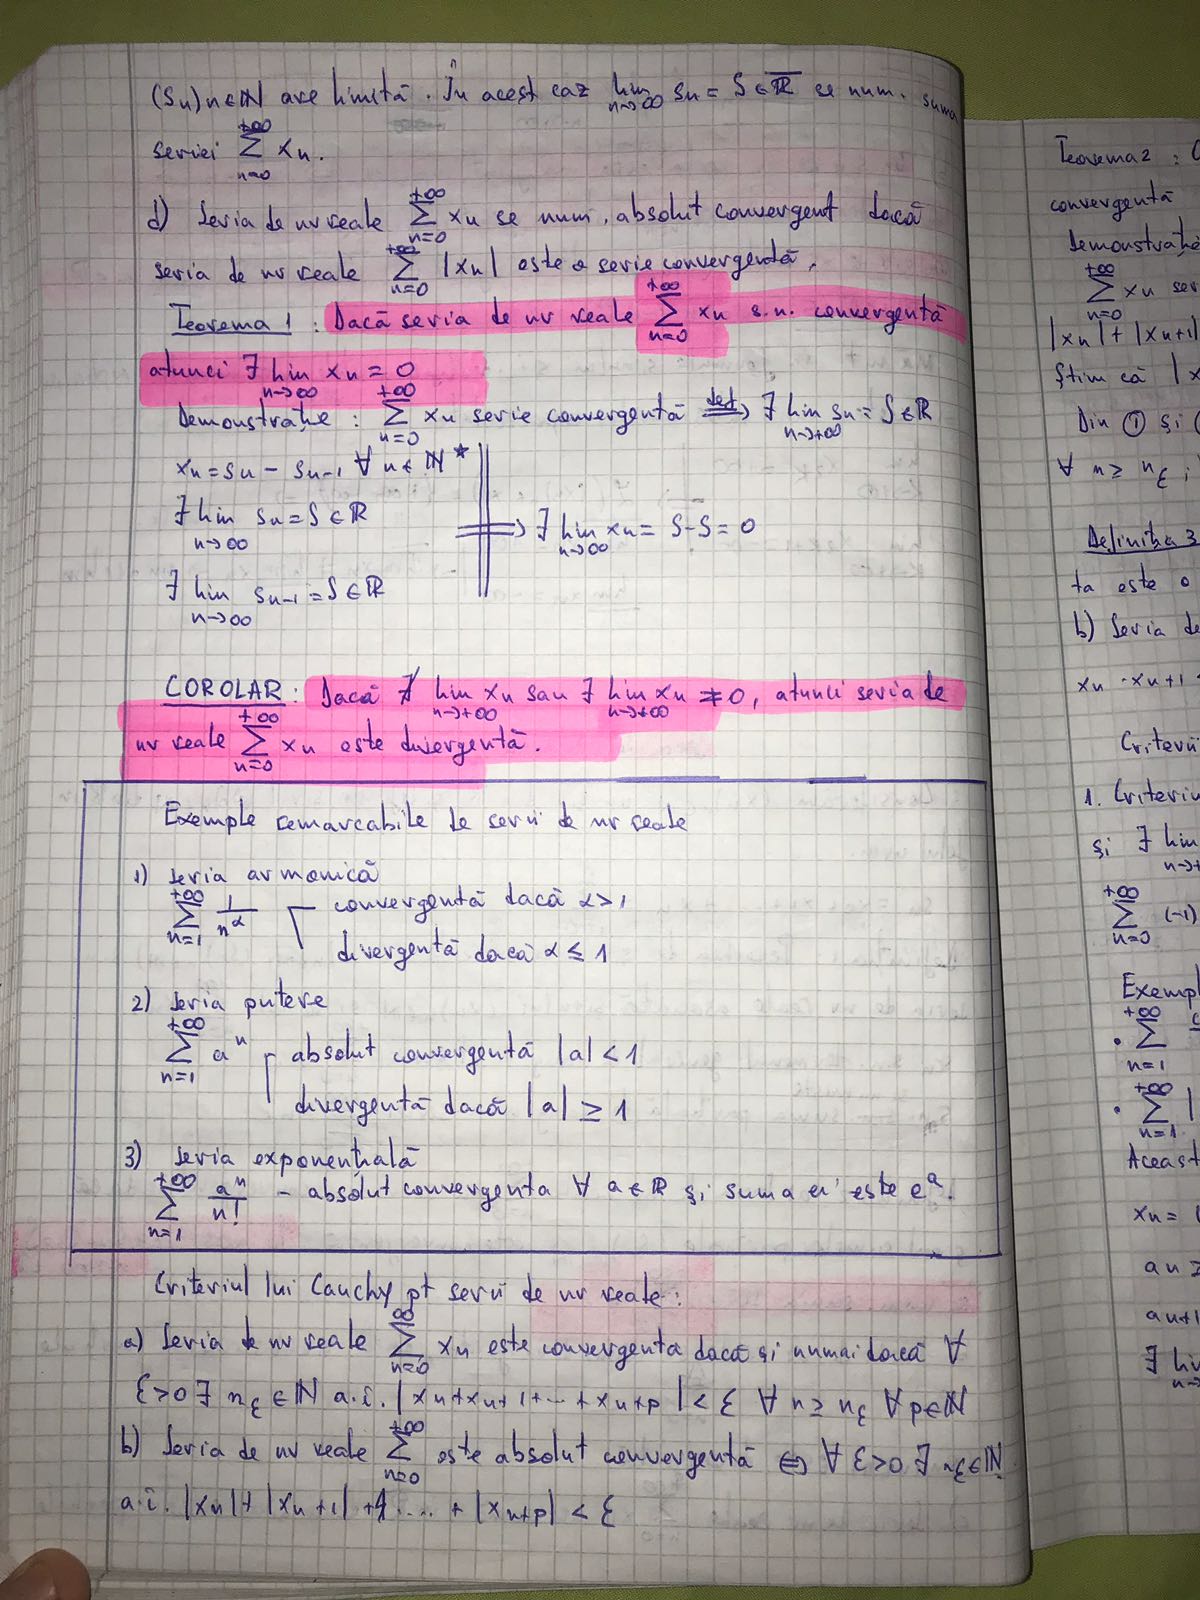 (Sn)n∈ℕ are limită. În acest caz lim n→∞ Sn = S ∈ ℝ̅ se num. suma
seriei +∞ ∑ n=0 xn.
d) Seria de nr reale +∞ ∑ n=0 xn se num. absolut convergent dacă
seria de nr reale +∞ ∑ n=0 |xn| este o serie convergentă.
Teorema 1 : Dacă seria de nr reale +∞ ∑ n=0 xn s.n. convergentă
atunci ∃ lim n→∞ xn = 0
Demonstrație : +∞ ∑ n=0 xn serie convergentă def ⟹ ∃ lim n→+∞ sn = S ∈ ℝ
xn = sn - sn-1 ∀ n ∈ ℕ*
∃ lim n→∞ sn = S ∈ ℝ
⟹ ∃ lim n→∞ xn = S-S = 0
∃ lim n→∞ sn-1 = S ∈ ℝ
COROLAR : Dacă ∄ lim n→+∞ xn sau ∃ lim n→+∞ xn ≠ 0, atunci seria de
nr reale +∞ ∑ n=0 xn este divergentă.
Exemple remarcabile de serii de nr reale
1) Seria armonică
+∞ ∑ n=1 1/n^α convergentă dacă α>1
divergentă dacă α ≤ 1
2) Seria putere
+∞ ∑ n=1 a^n absolut convergentă |a| < 1
divergentă dacă |a| ≥ 1
3) Seria exponențială
+∞ ∑ n=1 a^n/n! - absolut convergenta ∀ a∈ℝ și suma ei este e^a.
Criteriul lui Cauchy pt serii de nr reale :
a) Seria de nr reale ∞ ∑ n=0 xn este convergenta dacă și numai dacă ∀
ε>0 ∃ nε ∈ ℕ a.i. |xn+xn+1+...+xn+p| < ε ∀ n ≥ nε ∀ p∈ℕ
b) Seria de nr reale +∞ ∑ n=0 este absolut convergentă ⇔ ∀ ε>0 ∃ nε∈ℕ
a.i. |xn|+|xn+1|+ .... + |xn+p| < ε
Teorema 2 :
convergentă
Demonstrație
+∞ ∑ n=0 xn
|xn| + |xn+1|
Știm că
Din ① și
∀ n ≥ nε
Definiția 3
ta este o
b) Seria de
xn · xn+1
1. Criteriu
și ∃ lim
+∞ ∑ n=0 (-1)
• +∞ ∑ n=1
• +∞ ∑ n=1 |
xn =
an ≥
an+1